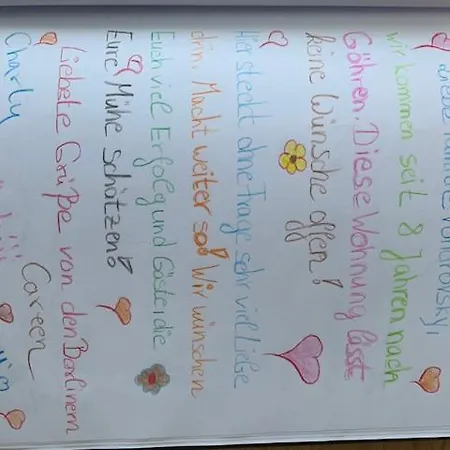 wir kommen seit 8 Jahren nach
Göhren. Diese Wohnung lässt
keine Wünsche offen!
Hier steckt ohne Frage sehr viel Liebe
drin. Macht weiter so! Wir wünschen
Euch viel Erfolg und Gäste, die
Eure Mühe schätzen!
Liebste Grüße von den Berlinern
Careen
Charly